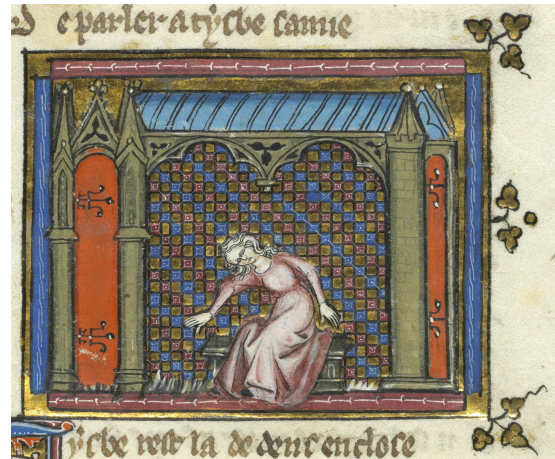 De parler a tysbe samie
Tysbe rest la dedenc enclose